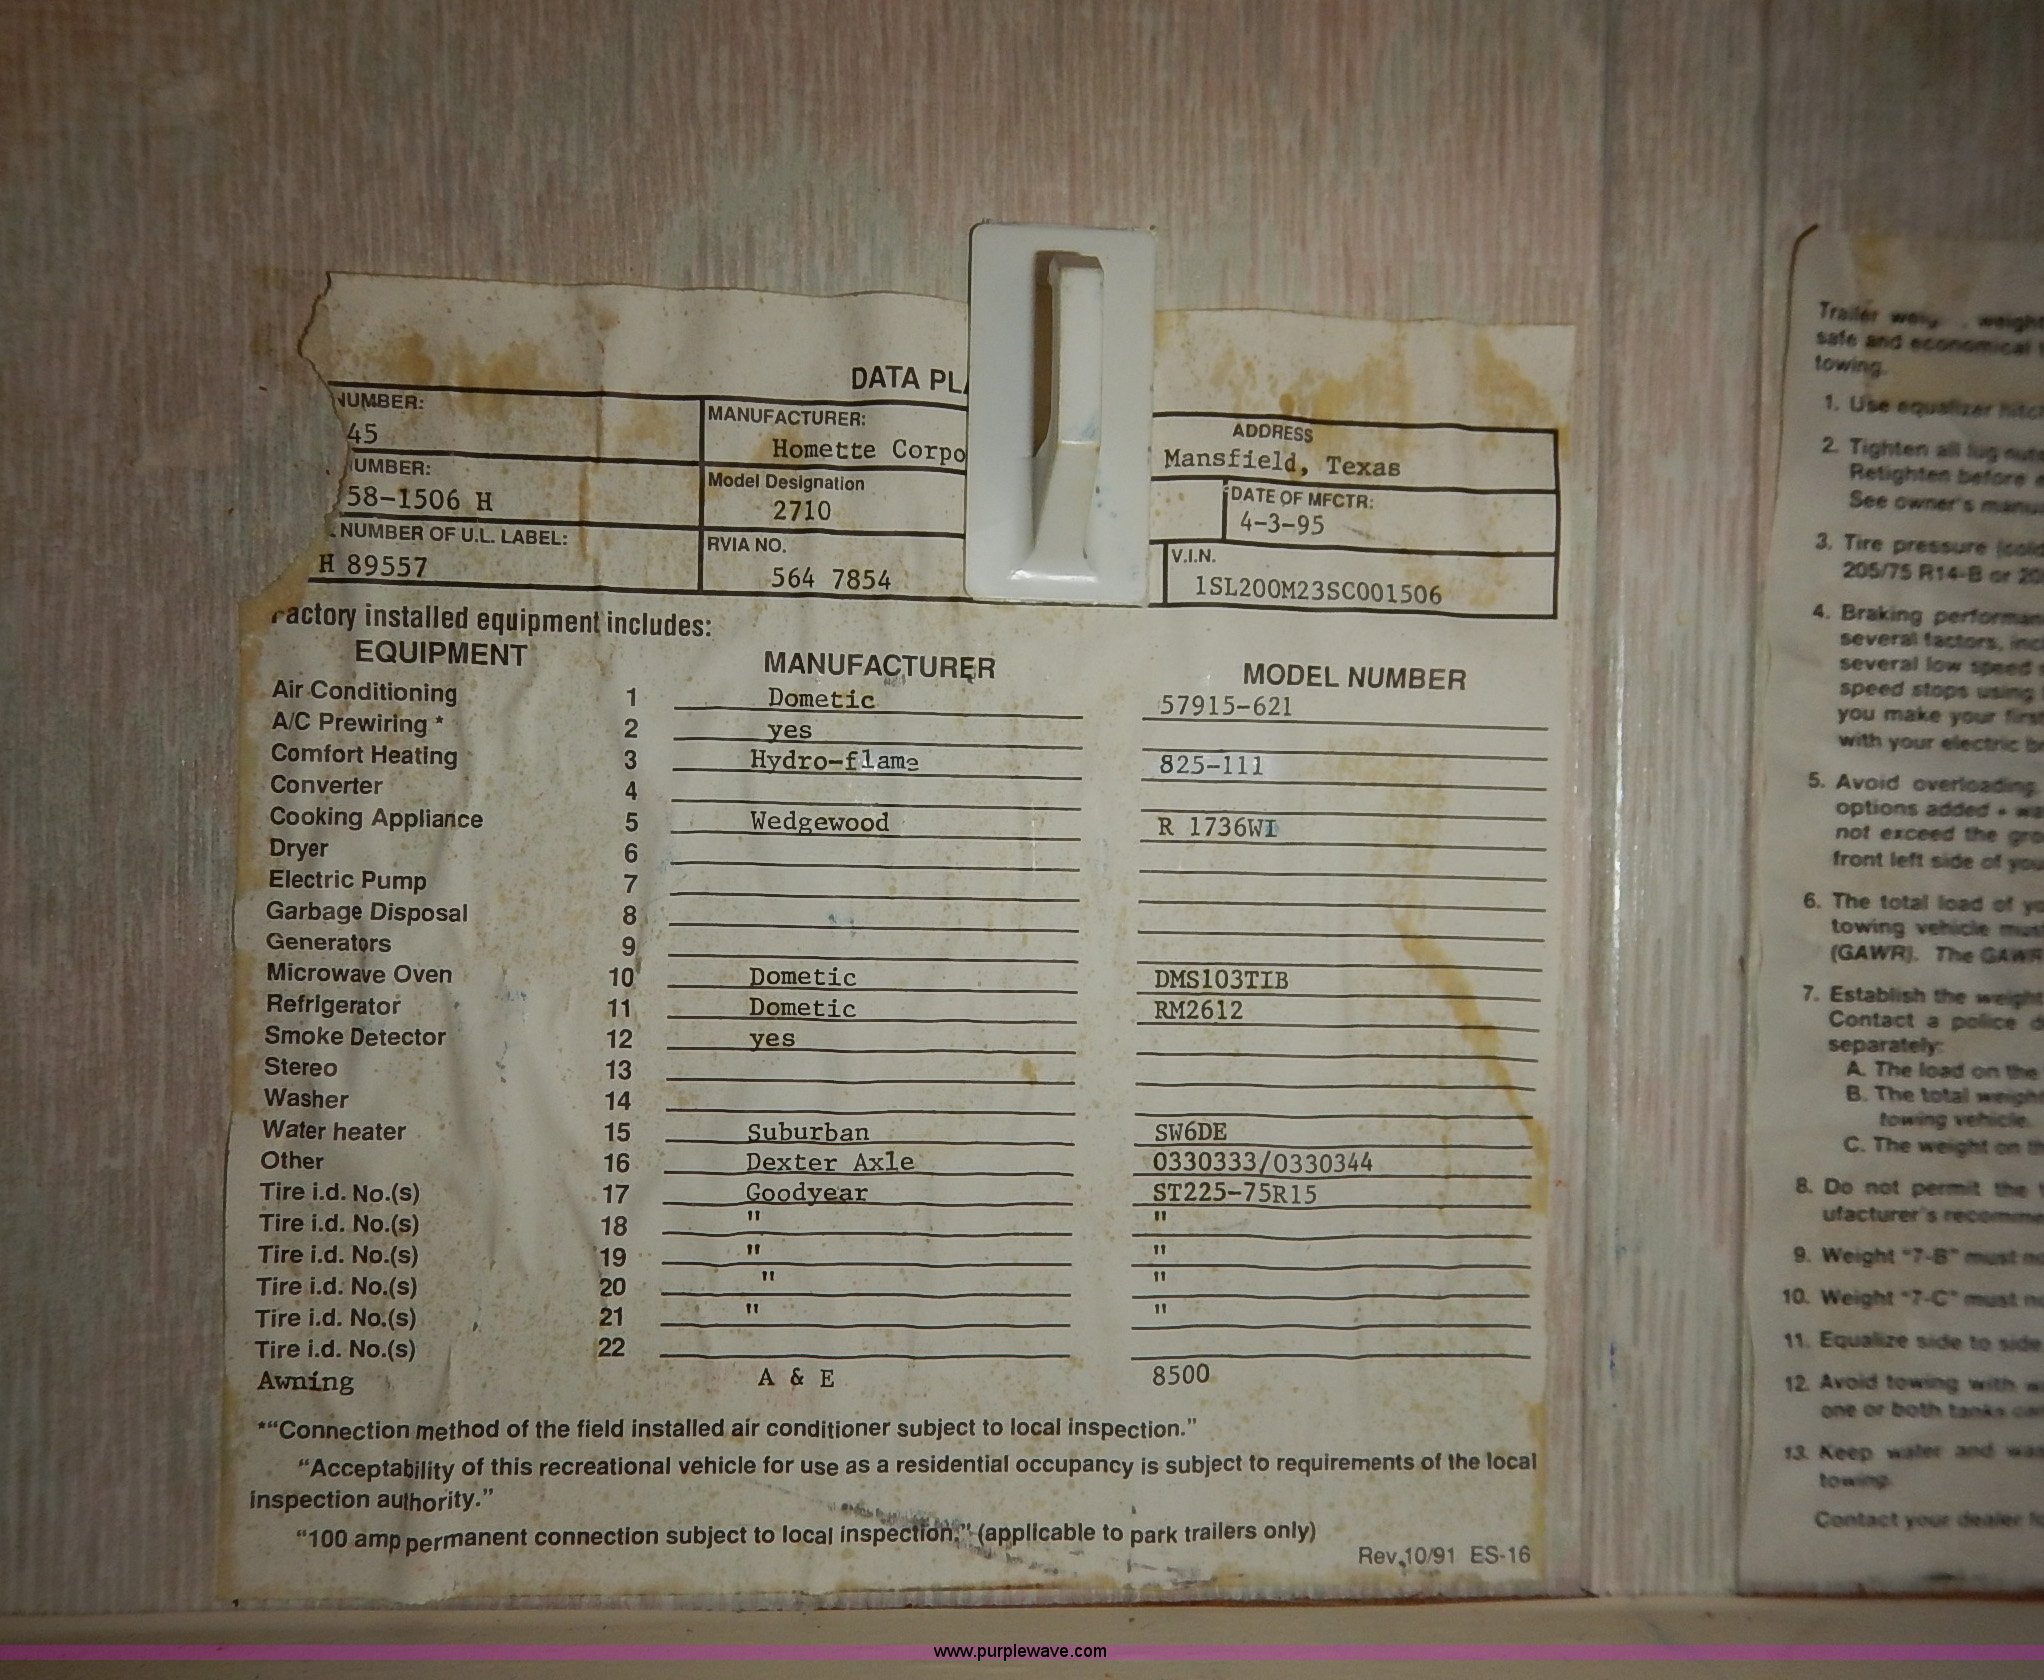 DATA PLA
NUMBER:
45
MANUFACTURER:
Homette Corpo
ADDRESS
Mansfield, Texas
UMBER:
58-1506 H
Model Designation
2710
DATE OF MFCTR:
4-3-95
NUMBER OF U.L. LABEL:
H 89557
RVIA NO.
564 7854
V.I.N.
1SL200M23SC001506
Factory installed equipment includes:
EQUIPMENT MANUFACTURER MODEL NUMBER
Air Conditioning 1 Dometic 57915-621
A/C Prewiring * 2 yes
Comfort Heating 3 Hydro-flame 825-111
Converter 4
Cooking Appliance 5 Wedgewood R 1736WI
Dryer 6
Electric Pump 7
Garbage Disposal 8
Generators 9
Microwave Oven 10 Dometic DMS103TIB
Refrigerator 11 Dometic RM2612
Smoke Detector 12 yes
Stereo 13
Washer 14
Water heater 15 Suburban SW6DE
Other 16 Dexter Axle 0330333/0330344
Tire i.d. No.(s) 17 Goodyear ST225-75R15
Tire i.d. No.(s) 18 " "
Tire i.d. No.(s) 19 " "
Tire i.d. No.(s) 20 " "
Tire i.d. No.(s) 21 " "
Tire i.d. No.(s) 22
Awning A & E 8500
*"Connection method of the field installed air conditioner subject to local inspection."
"Acceptability of this recreational vehicle for use as a residential occupancy is subject to requirements of the local
inspection authority."
"100 amp permanent connection subject to local inspection." (applicable to park trailers only)
Rev.10/91 ES-16
Trailer weight
safe and economical
towing.
1. Use equalizer hitch
2. Tighten all lug nuts
Retighten before
See owner's manu
3. Tire pressure (cold
205/75 R14-B or 20
4. Braking performan
several factors, incl
several low speed
speed stops using
you make your first
with your electric b
5. Avoid overloading
options added + wa
not exceed the gro
front left side of you
6. The total load of yo
towing vehicle must
(GAWR). The GAWR
7. Establish the weight
Contact a police
separately:
A. The load on the
B. The total weight
towing vehicle.
C. The weight on th
8. Do not permit the
ufacturer's recomme
9. Weight "7-B" must no
10. Weight "7-C" must no
11. Equalize side to side
12. Avoid towing with
one or both tanks can
13. Keep water and was
towing.
Contact your dealer fo
www.purplewave.com